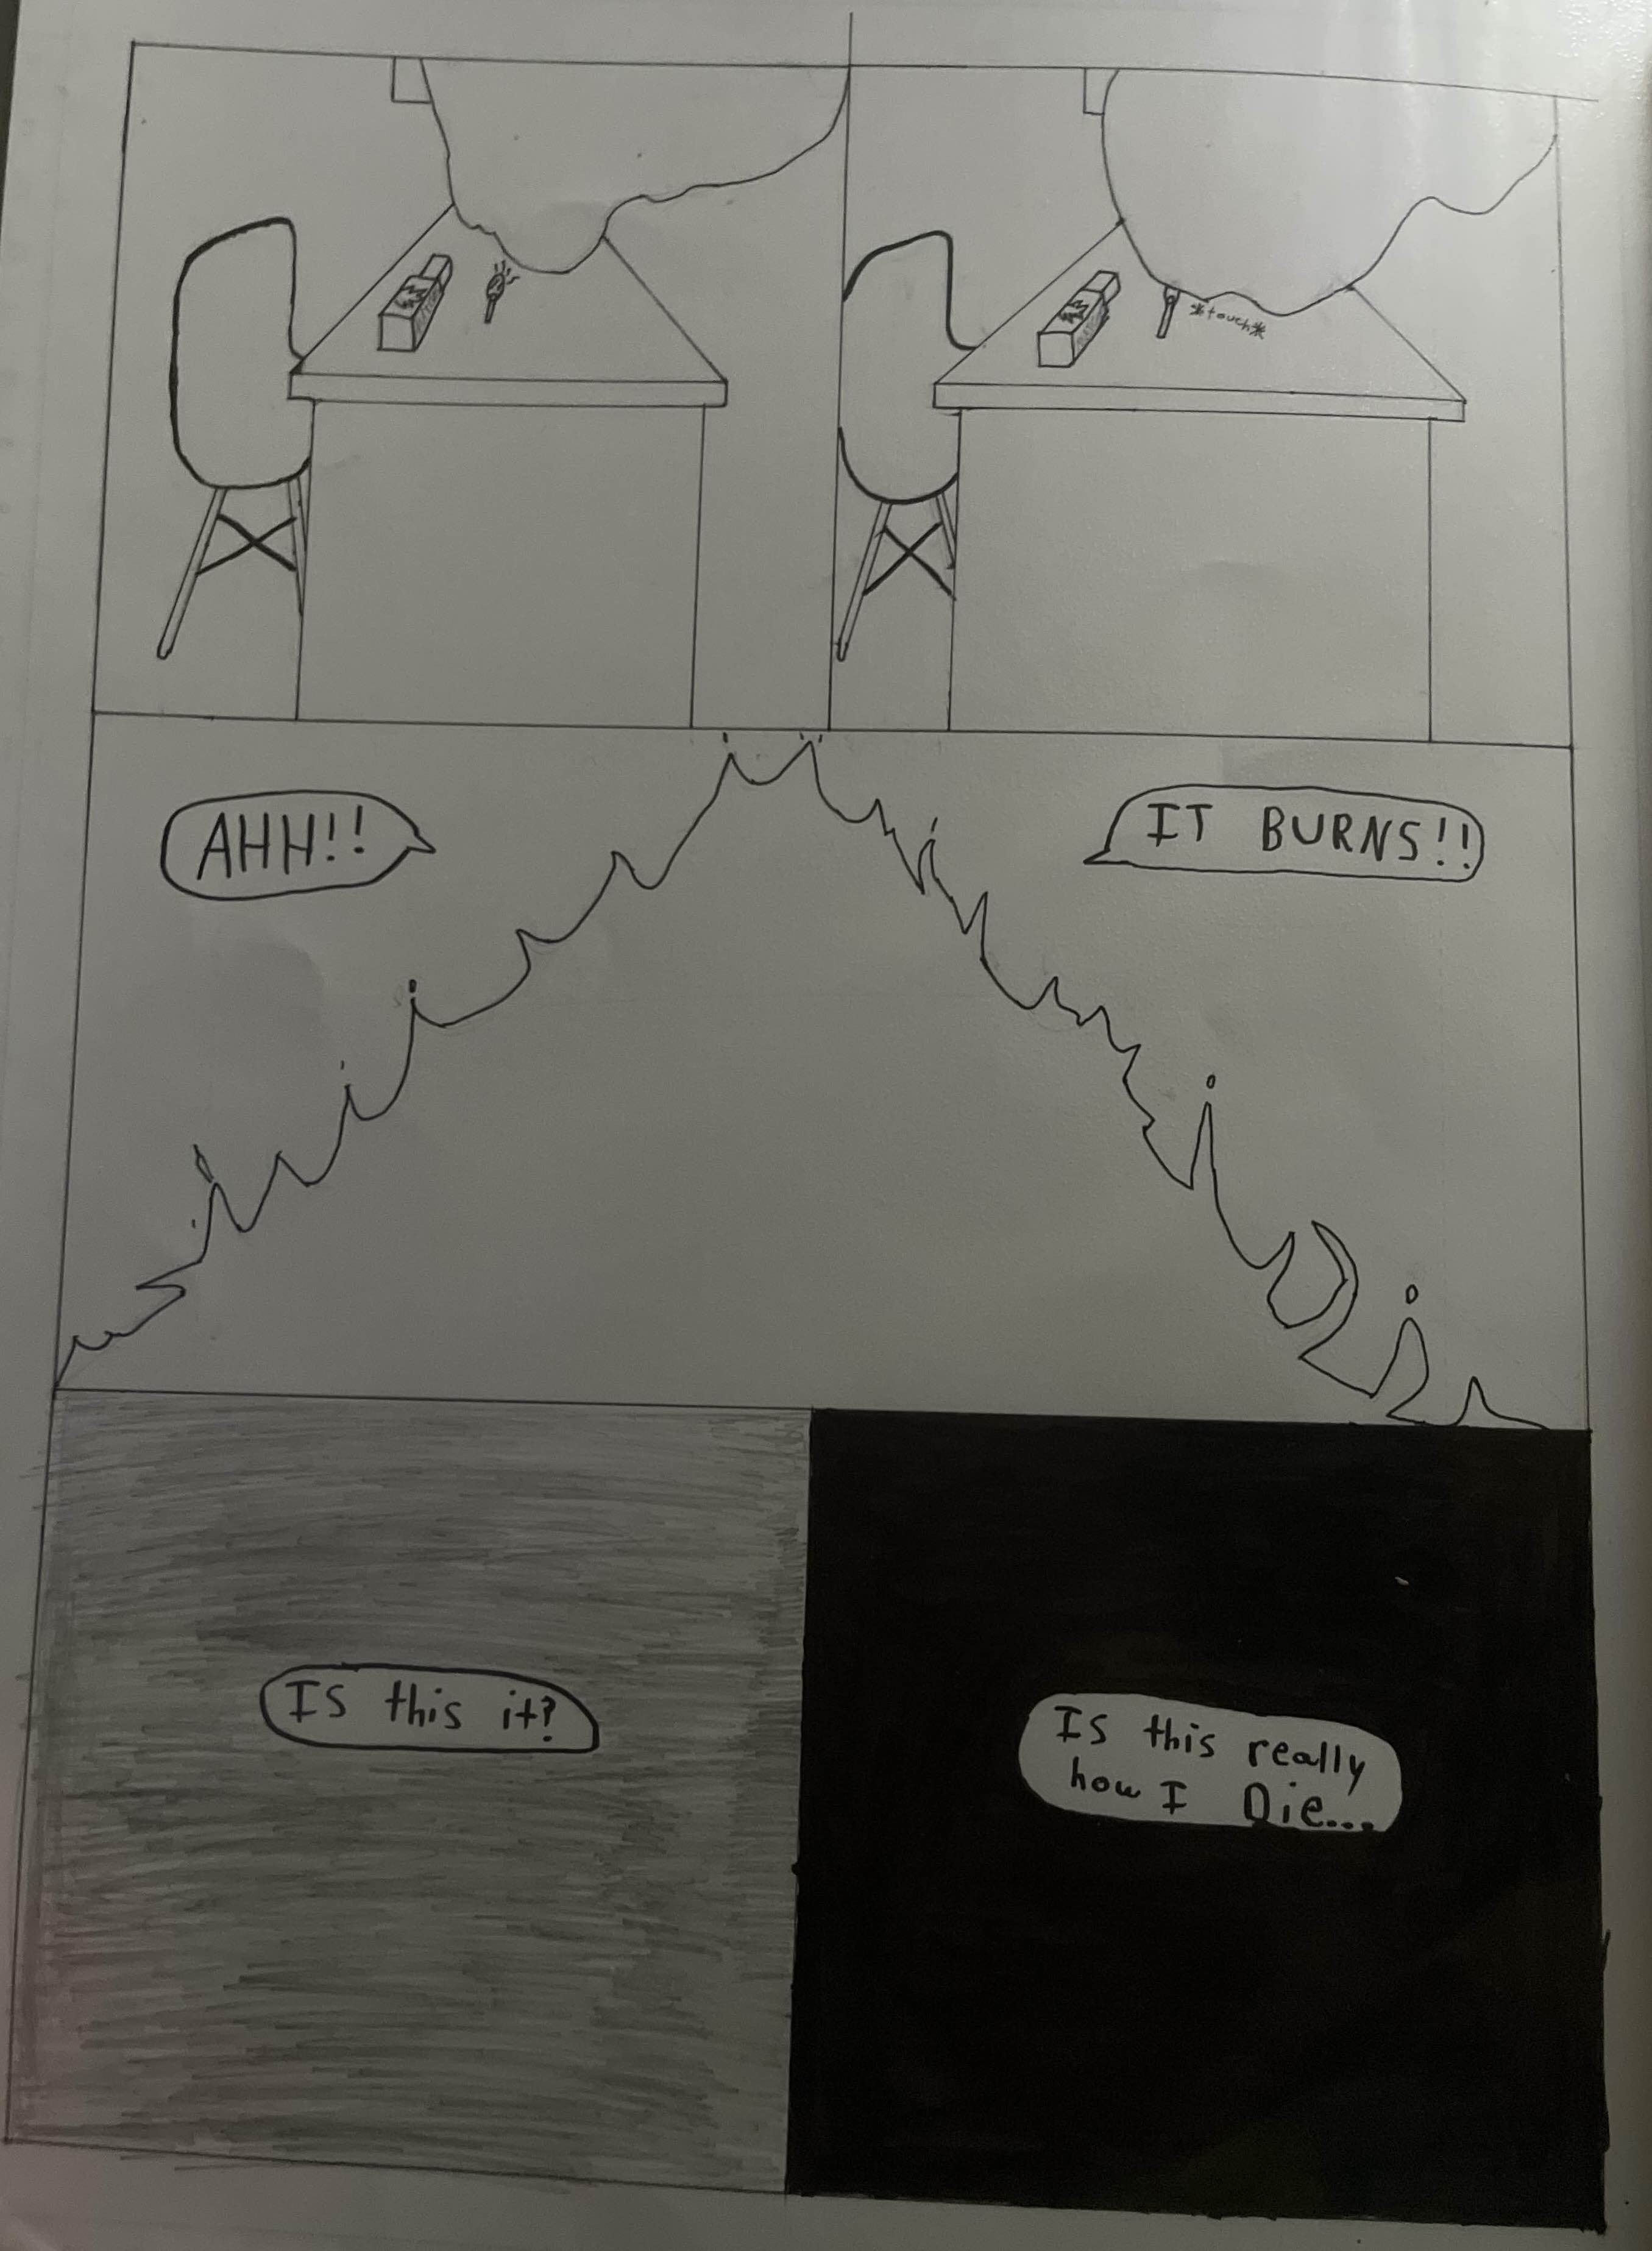 *touch*
AHH!!
IT BURNS!!
Is this it?
Is this really
how I Die...